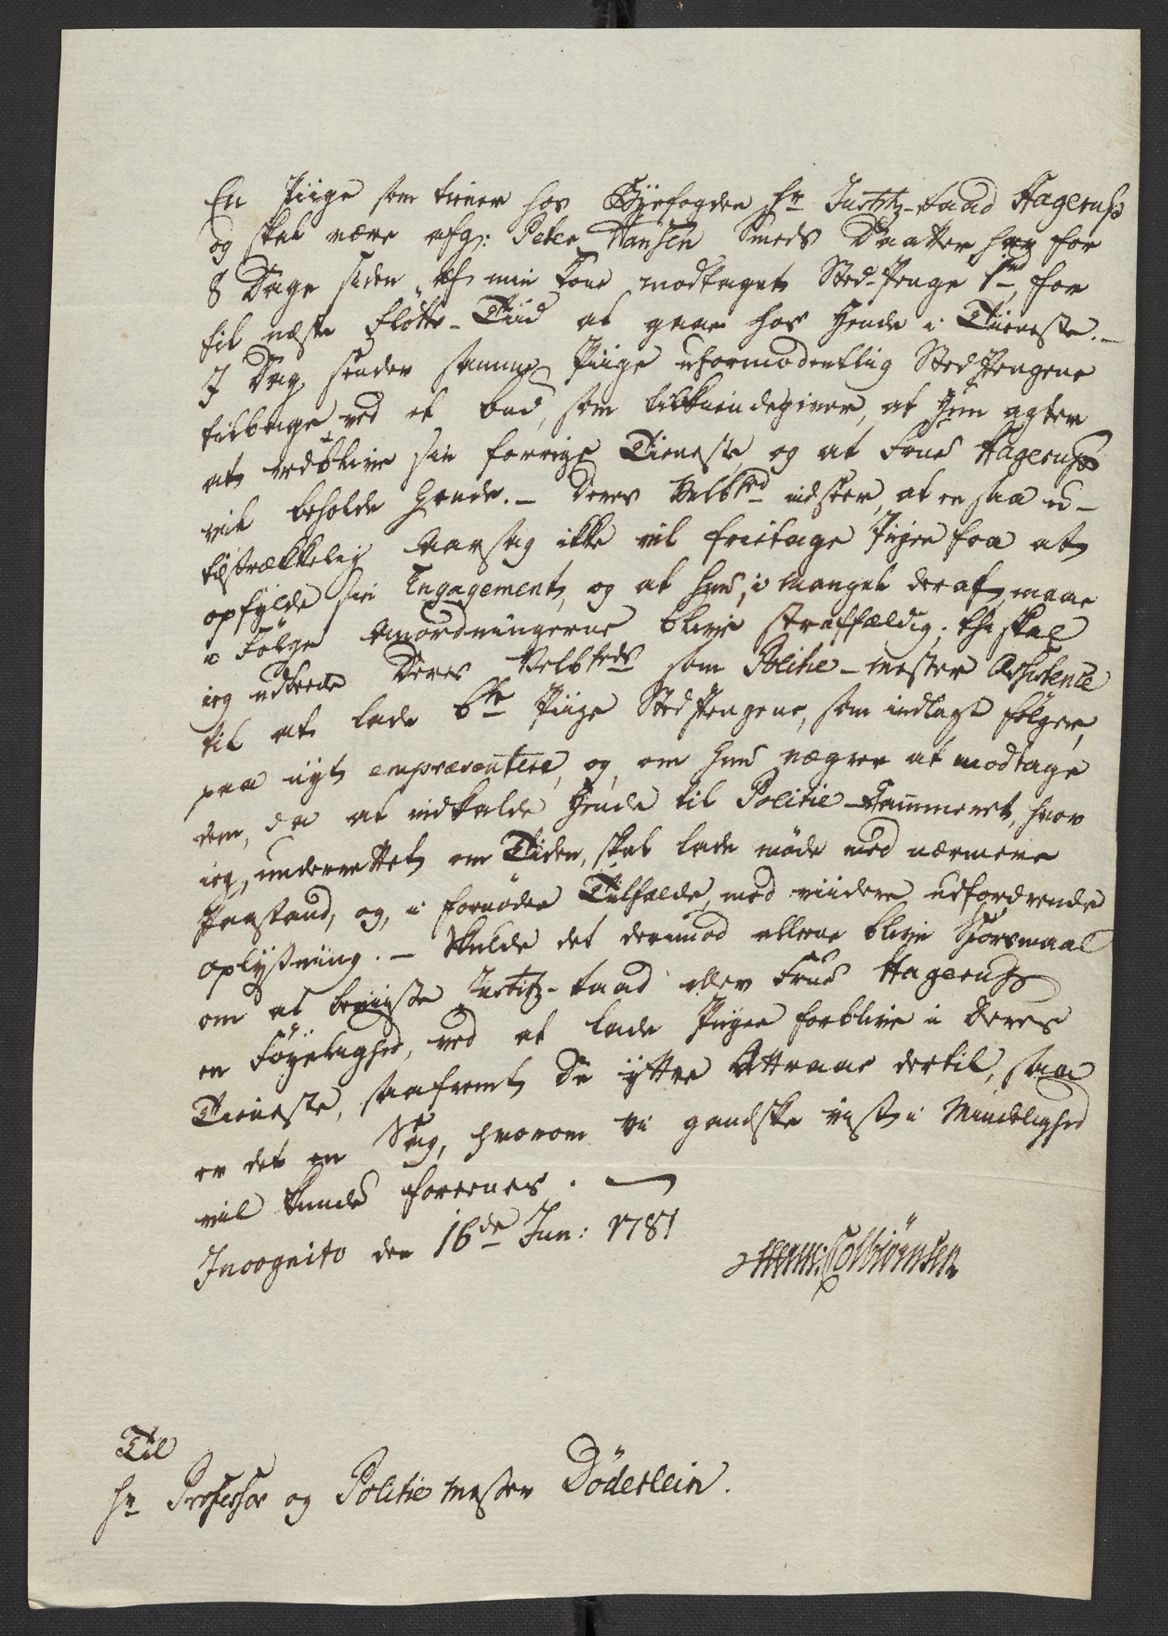 En Piige som tiener hos Byefogden Hr Justitz-Raad Hagerup
og skal være afg: Peter Hansen Smeds Daatter har for
8 Dage siden af min Kone modtaget Sted-Penge 1rd for
til næste Flötte-Tiid at gaae hos Hende i Tieneste. –
I Dag sender samme Piige uformodentlig StedPengene
tilbage ved et bud, som tilkiendegiver, at Hun agter
at vedblive sin forrige Tieneste, og at Frue Hagerup
vil beholde Hende. – Deres Velbhd indseer, at en saa u-
tilstrækkelig Aarsag ikke vil fritage Pigen fra at
opfylde sin Engagement, og at hun, i Mangel deraf, maae
i Følge Anordningerne blive straffældig; thi skal
ieg udbede Deres Velbheds som Politie-mester Assistence
til at lade bte Piige StedPengene, som indlagt følger,
paa nyt empræsentere, og, om hun nægter at modtage
dem, da at indkalde Hende til Politie-Kammeret, hvor
ieg, underrettet om Tiden, skal lade møde med nærmere
Paastand, og, i fornøden Tilfælde, med viidere udfordrende
oplysning. – Skulde det derimod allene blive Spörsmaal
om at beviise Justitz-Raad eller Frue Hagerup
en Föyelighed, ved at lade Pigen forblive i Deres
Tieneste, saafremt De yttre Attraae dertil, saa
er det en Sag, hvorom vi gandske vist i Mindelighed
vil kunde foreenes. –
Incognito den 16de Jun: 1781
Colbiörnsen
Til
Hr Professor og Politiemester Döderlein.